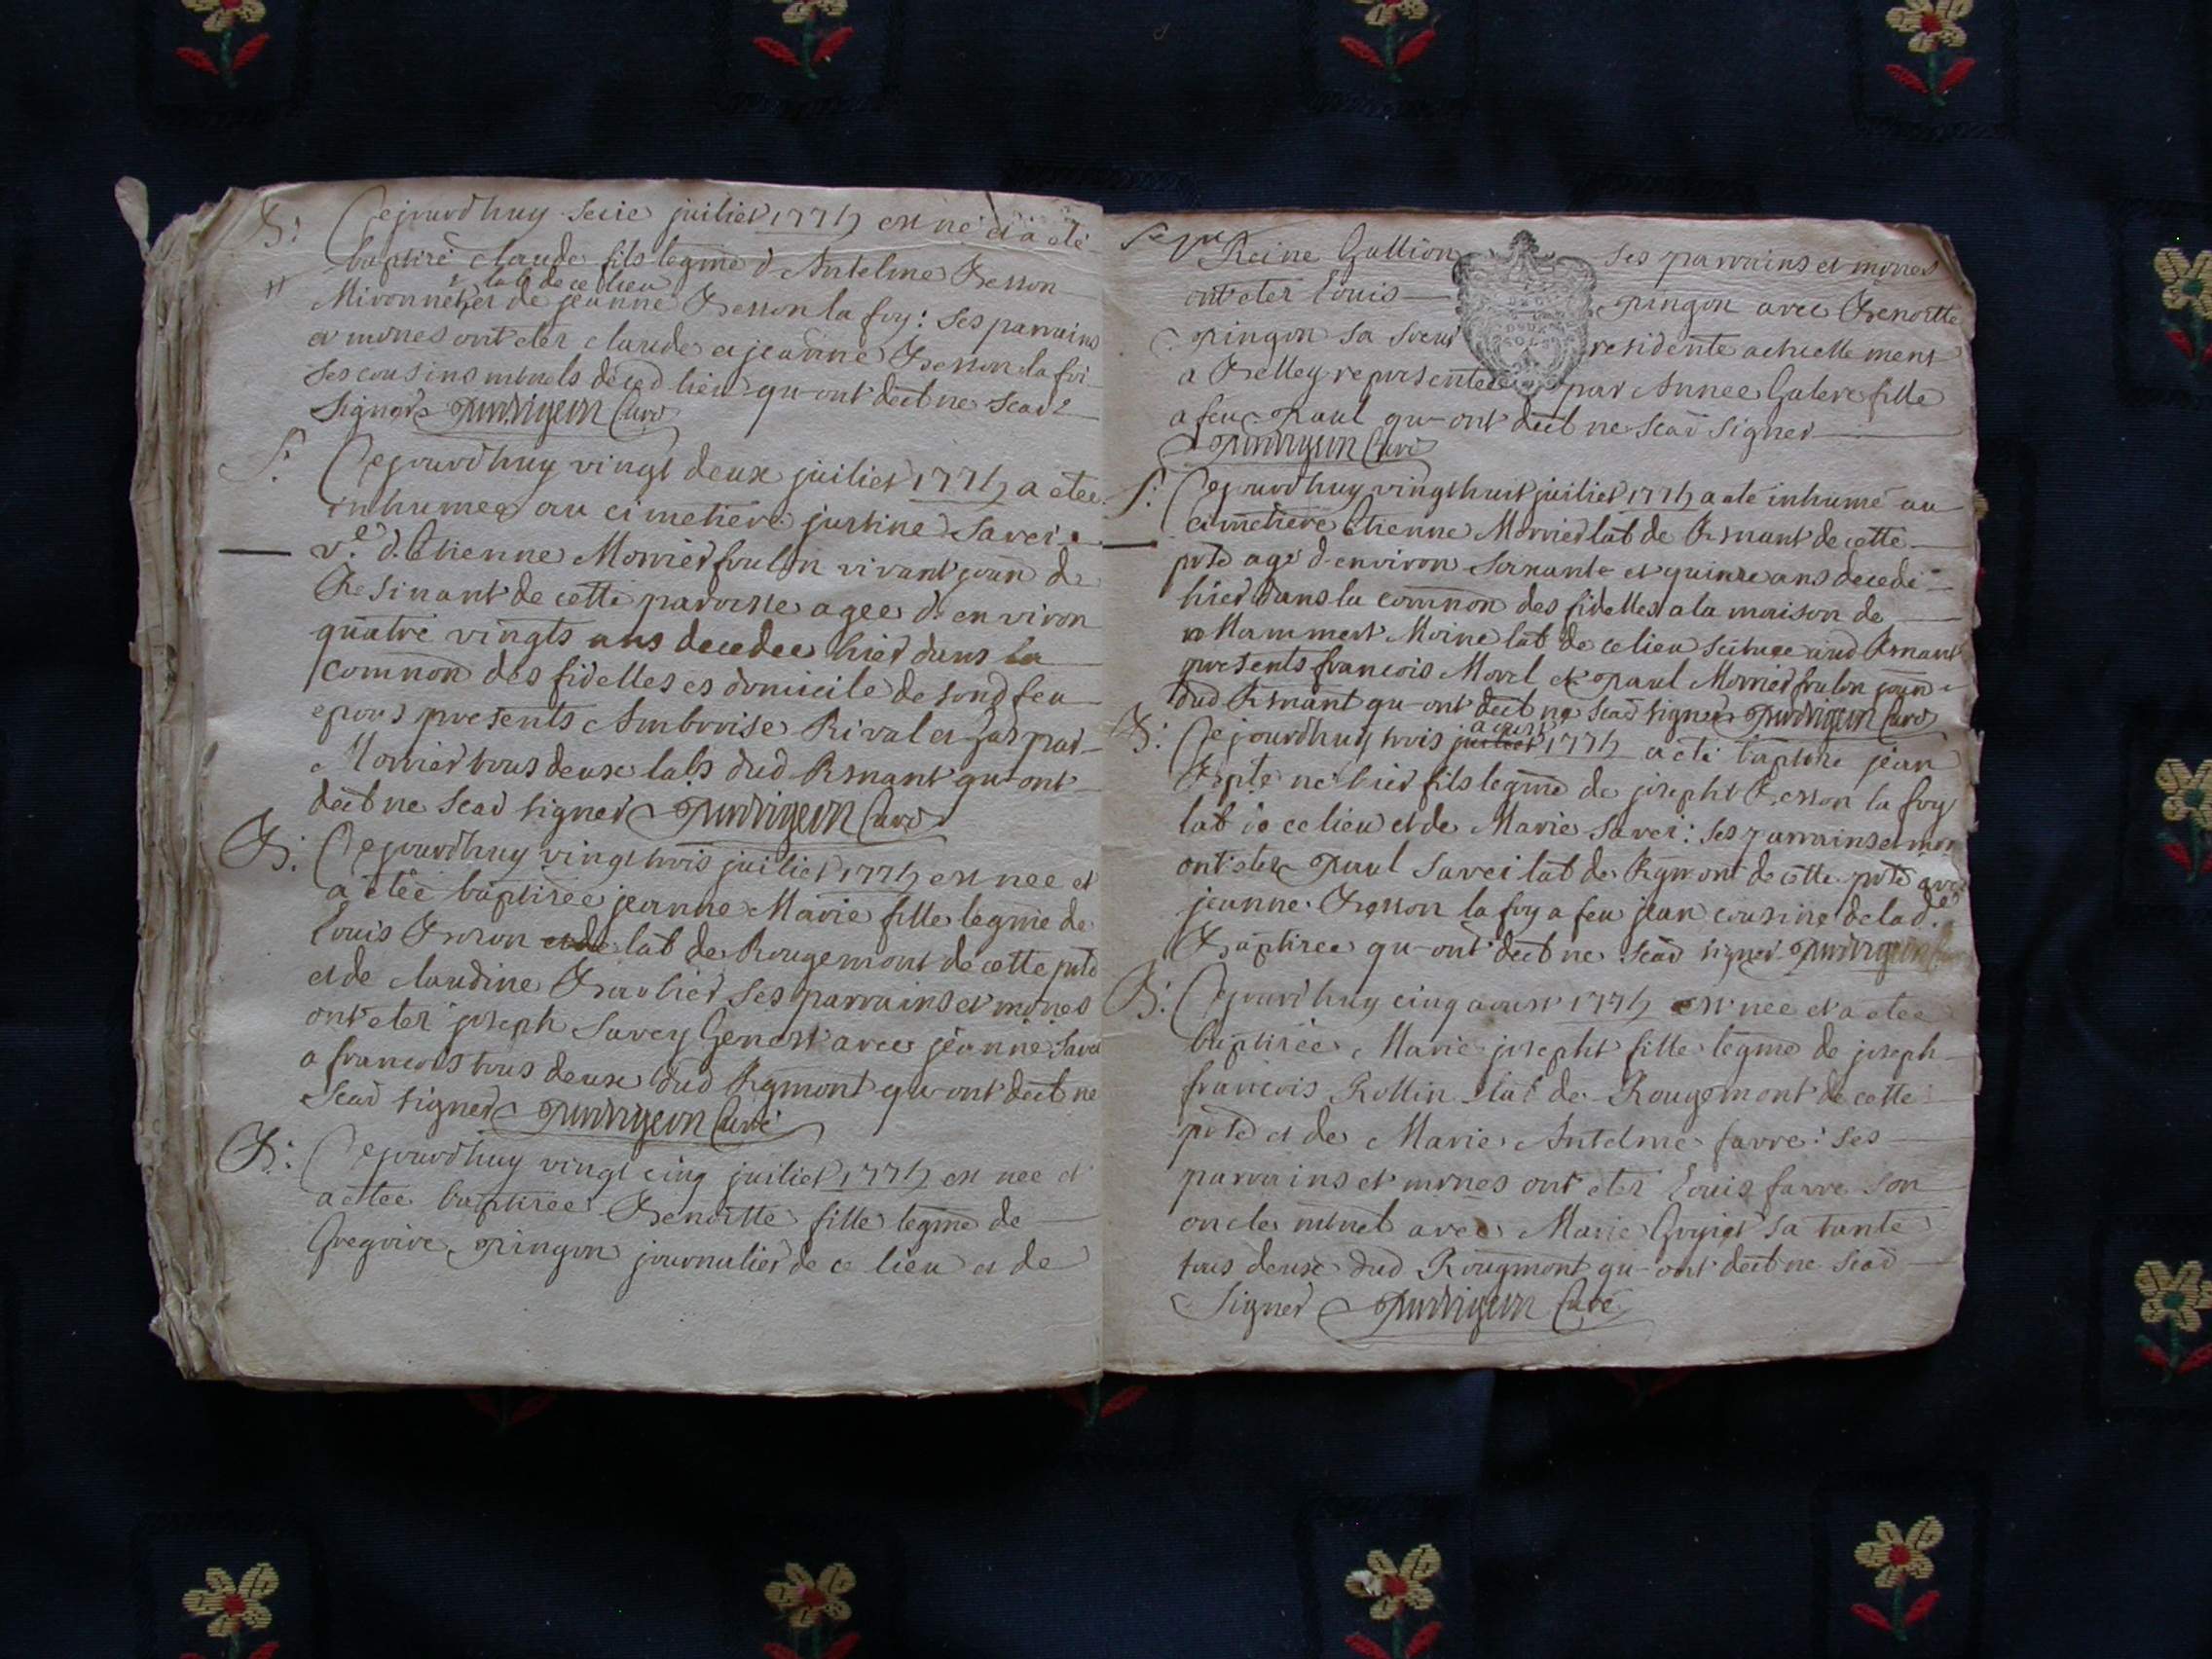 B: Cejourdhuy seeie juiliet 1774 est né et a été
baptisé claude fils legme d Antelme Besson
lab de ce lieu
Mivonnet, et de jeanne Besson la foy: ses parrains
et mrnes ont eter claude et jeanne Besson la foi
ses cousins mtnels de ced lieu qu-ont décl ne scad
signer curé
S: Cejourdhuy vingt deux juiliet 1774 a etee
inhumee au cimetiere justine Savei
v.e d. Etienne Morrier foulon vivant journ de
Resinant de cette paroisse agee d. environ
quatre vingts ans decedee hier dans la
commnon des fidelles es domicile de sond feu
epoux presents Ambroise Rival et Gaspar
Morrier tous deux labs dud Rsnant qu-ont
declt ne scad signer curé
B: Cejourdhuy vingt trois juiliet 1774 est nee et
a étée baptisée jeanne Marie fille legme de
Louis lab de Rougemont de cette pnte
et de claudine ses parrains et mrnes
ont eter joseph Savey Genest avec jeanne Savei
a francois tous deux dud Rgmont qu-ont declt ne
scad signer curé
B: Cejourdhuy vingt cinq juiliet 1774 est nee et
a ettee baptisee Benoitte fille legme de
Gregoire pingon journalier de ce lieu et de
Reine Gallion ses parrains et mrnes
ont eter Louis pingon avec Benoitte
pingon sa soeur residente actuellement
a Belley representee par Annee Galere fille
a feu Paul qu-ont declt ne scad signer
curé
S: Cejourdhuy vingt huit juiliet 1774 a ete inhumé au
cimetiere Etienne Morrier lab de Rsnant de cette
pnte agé d-environ soixante et quinze ans decedé
hier dans la commnon des fidelles a la maison de
Mammert Moine lab de ce lieu scituee aud Rsnant
presents francois Morel et paul Morrier foulon journ
dud Rsnant qu-ont declt ne scad signer curé
aoust
B: Cejourdhuy trois juiliet 1774 a eté baptisé jean
Bapte né hier fils legme de josepht Besson la foy
lab de ce lieu et de Marie Savei: ses parrains et mrn
ont eter paul Savei lab de Rgmont de cette pnte avec
jeanne Besson la foy a feu jean cousine de la d.e
Baptisee qu-ont declt ne scad signer
B: Cejourdhuy cinq aoust 1774 est nee et a etee
baptisée Marie josepht fille legme de joseph
francois Rollin lab de Rougemont de cette
pnte et de Marie Antelme farre: ses
parrains et mrnes ont eter Louis farre son
oncle mtnel avec Marie sa tante
tous deux dud Rougmont qu-ont declt ne scad
signer curé